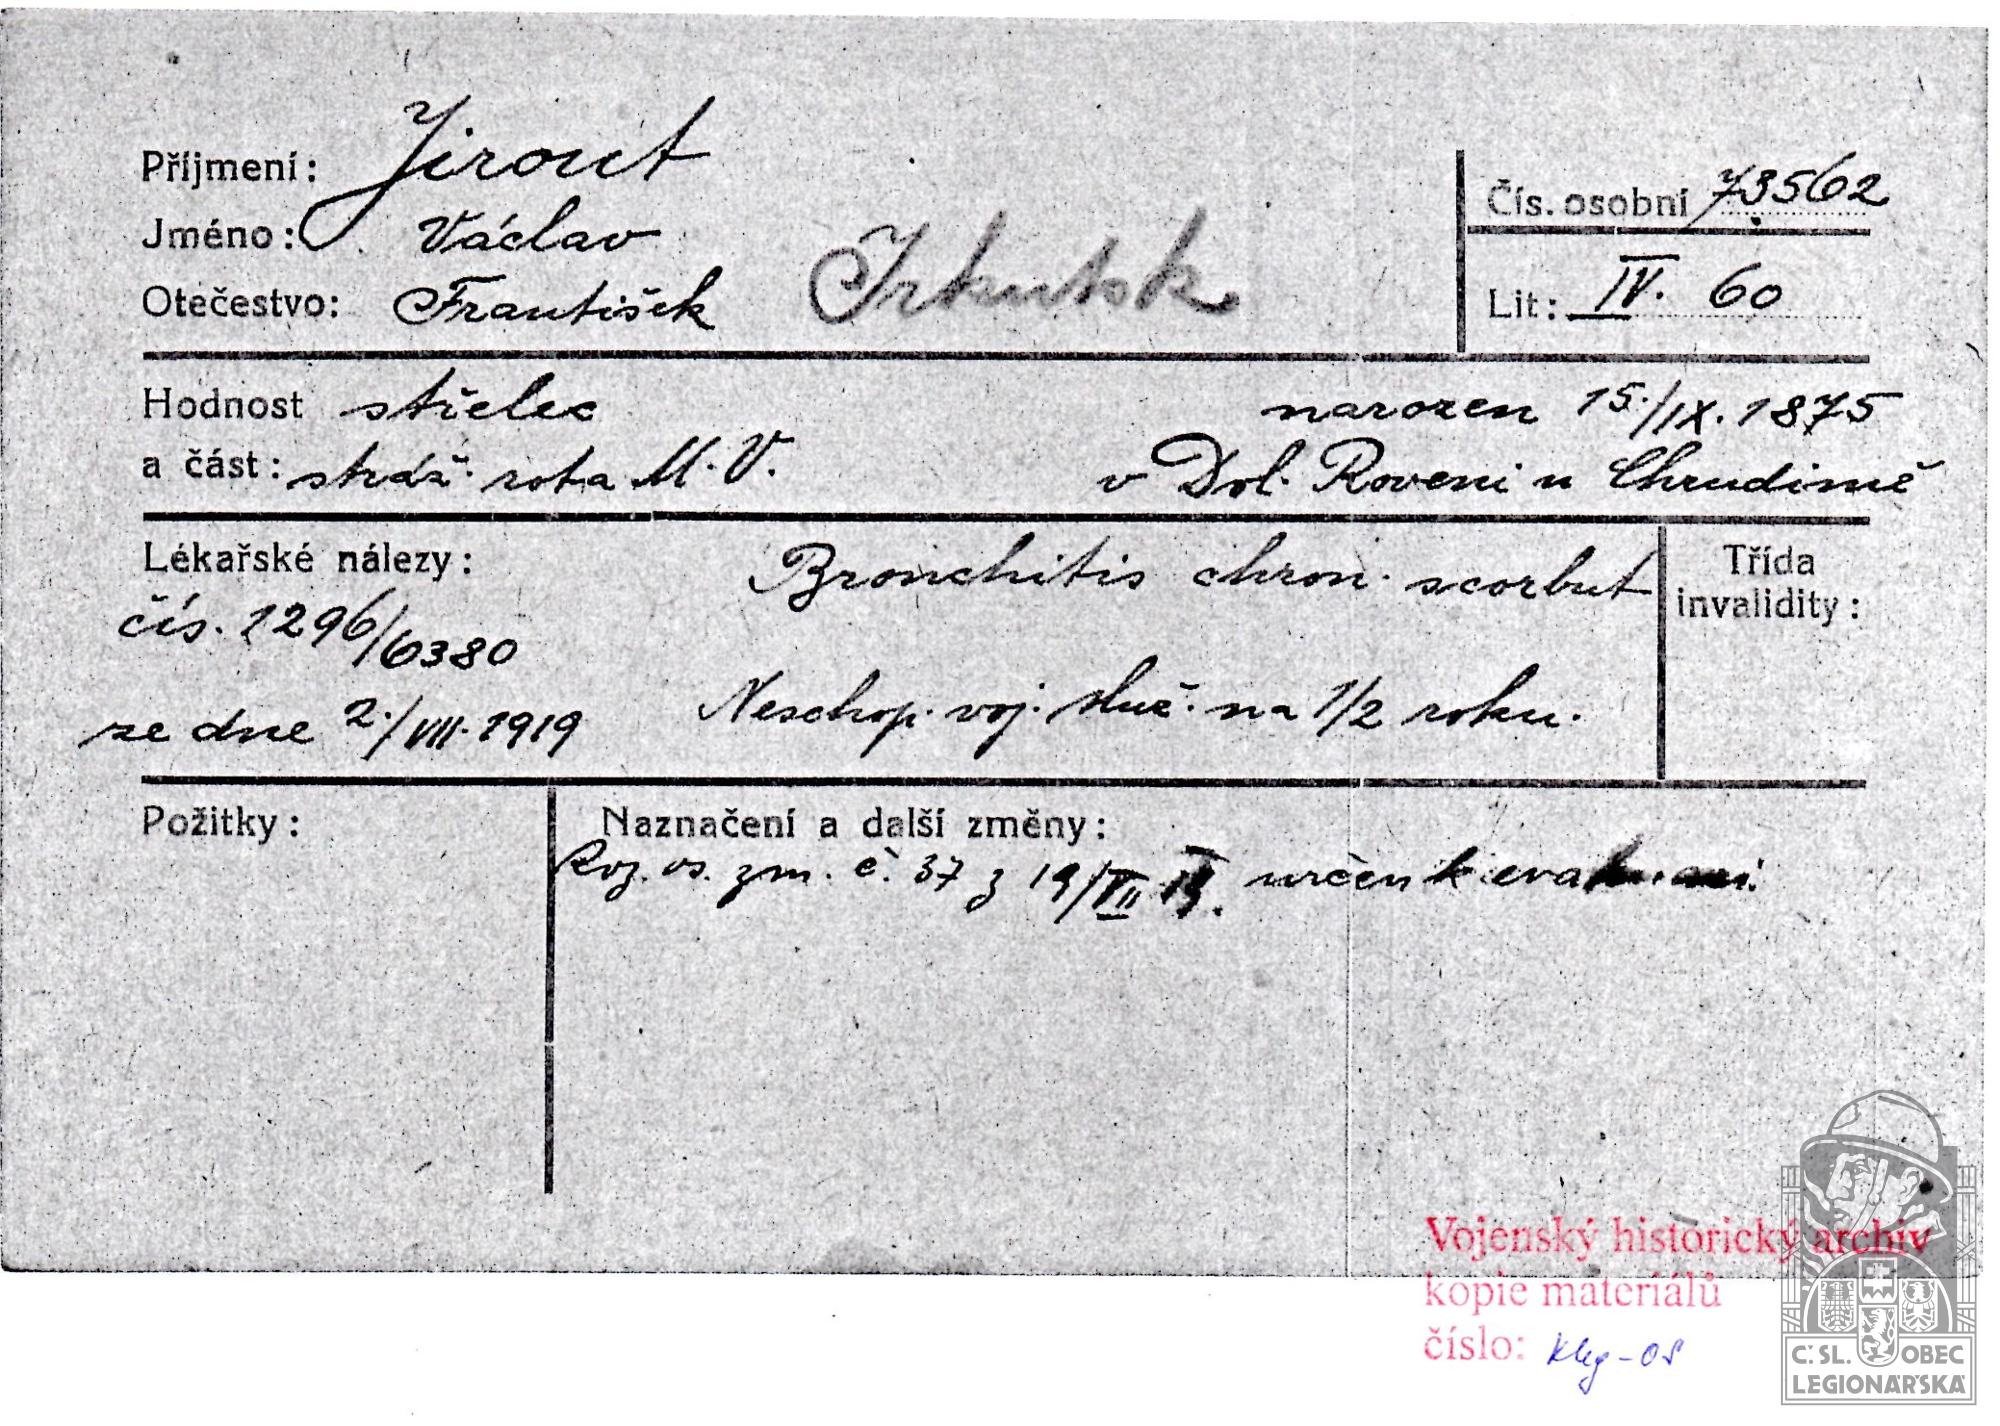 Příjmení: Jirout
Čís. osobní 73562
Jméno: Václav
Irkutsk
Otečestvo: František
Lit: IV. 60
Hodnost střelec
narozen 15./IX. 1875
a část: stráž. rota M. V.
v Dol. Roveni u Chrudimě
Lékařské nálezy:
Bronchitis chron. scorbut
Třída
invalidity:
čís. 1296/6380
ze dne 2./VIII. 1919
Neschop. voj. služ. na 1/2 roku.
Požitky:
Naznačení a další změny:
Roz. os. zm. č. 37 z 19/VII 19. určen k evakuaci.
Vojenský historický archiv
kopie materiálů
číslo: Kleg-OS
Č. SL. OBEC
LEGIONÁŘSKÁ